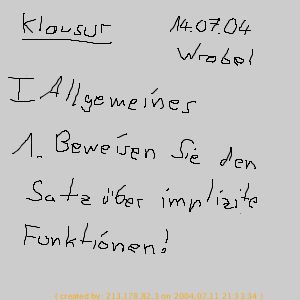 Klausur
14.07.04
Wrobel
I Allgemeines
1. Beweisen Sie den
Satz über implizite
Funktionen!
( created by: 213.178.82.3 on 2004.07.11 21:33:34 )